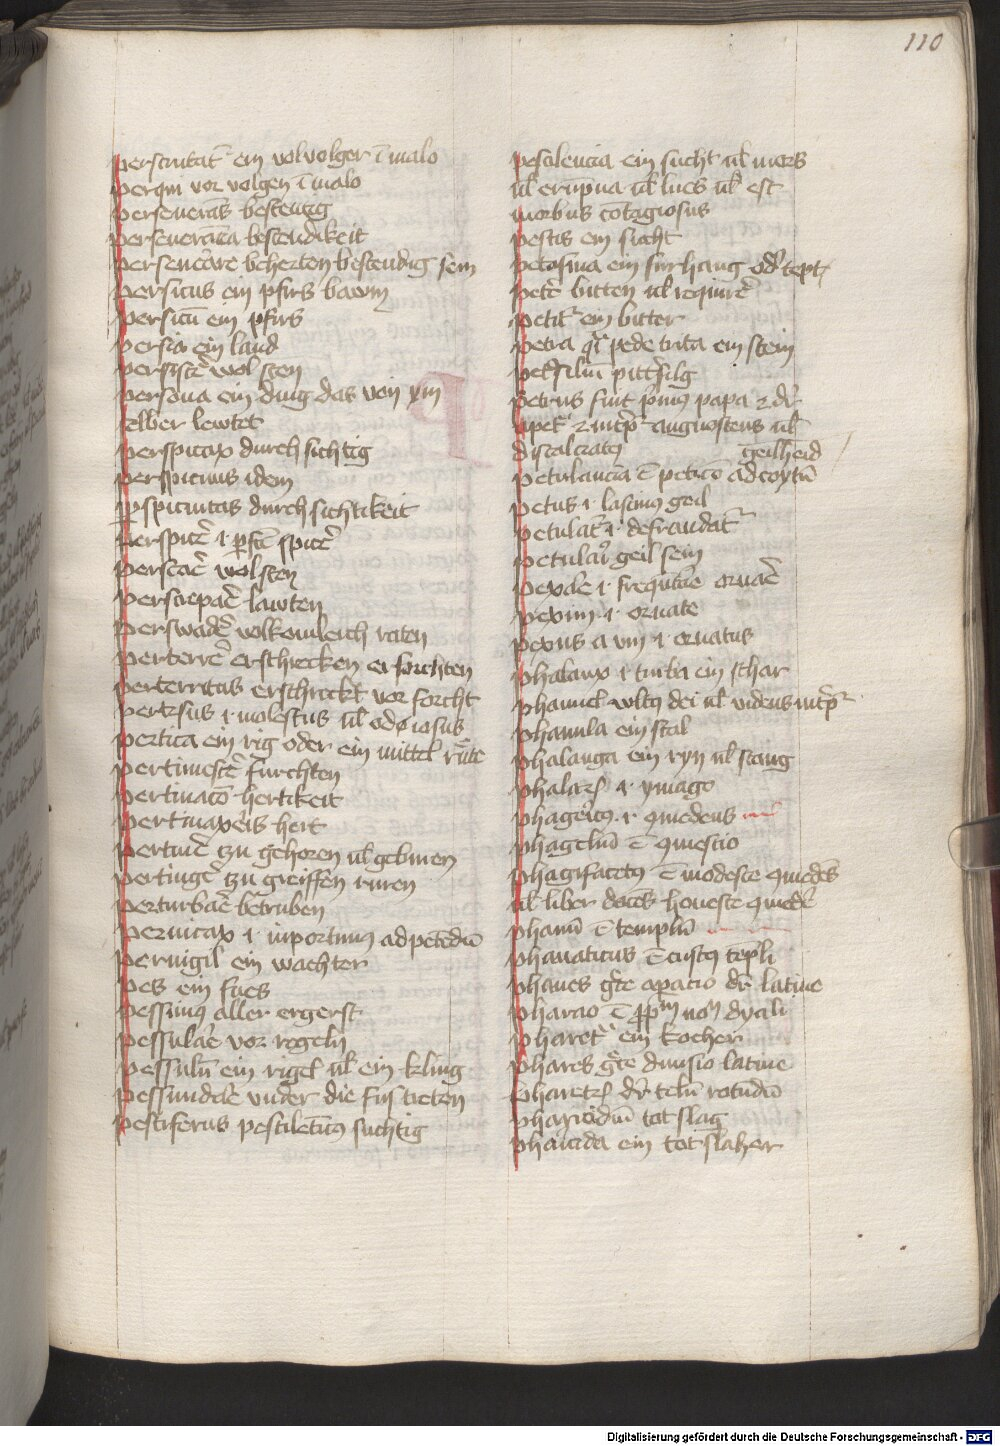 110
perscrutatr̄ ein volvolger ī malo
perqui vor volgen ī malo
perseuerās bestendig
perseuerācia bestendikeit
perseuerāre beherten bestendig sein
persicus ein pfirs bawm
persicū ein pfirs
persia ein land
persistē wol sten
persona ein ding das von ym
selber lewtet
perspicax durch sichtig
perspicuus idem
pspicuitas durch sichtikeit
perspicē .i. pfcē spicē
perstaē wol sten
perstrepaē lawten
perswadē volkomleich raten
perterrē erschrecken er forchten
perterritus erschrickt vor forcht
pertesus .i. molestus ul odiosus
pertica ein rig oder ein mittel rute
pertimescē furchten
pertinacō hertikeit
pertinax eris hert
pertinē tzu gehoren ul geburen
pertingē tzu greiffen ruren
perturbaē betruben
peruicax .i. inportunus ad petēdū
peruigil ein wachter
pes ein fues
pessimus aller ergerst
pessulaē vor rigeln
pessulū ein rigel ul ein kling
pessundaē vnder die fus treten
pestiferus pestilēticus suchtig
pestilencia ein sucht ul mors
ul erūpna ul lues ul est
morbus cōtagiosus
pestis ein sucht
petosina ein furhang od tept
petē bitten ul requirē
petitr̄ ein bitter
petra q̄i pede trita ein stein
petsiliū pittersilg
petrus fuit prim papa
discalciatus geilheid
petulancia ē peticō ad coytū
petus .i. lasciuus geil
petulatr̄ .i. defraudatr̄
petulari geil sein
pexale .i. frequētare ornaē
pexim .i. ornate
pexus a vm .i. ornatus
phalanx .i. turba ein schar
phanuel vultus dei ul videns
phanula ein stal
phalanga ein ryn ul stang
phalars .i. ymago
phagericus .i. qmedens
phagelum ē questio
phagifacetus ē modeste qmedēs
ul liber docēs honeste qmedē
phanū ē templū
phanaticus ē custos tēpli
phanes grece apacio dr̄ latine
pharao ē ppm nom dyali
pharetr̄ ein kocher
phares grece diuisio latine
pharetrs dr̄ telū rotudū
pharricidiū tot slag
pharicida ein tot slaher
Digitalisierung gefördert durch die Deutsche Forschungsgemeinschaft - DFG